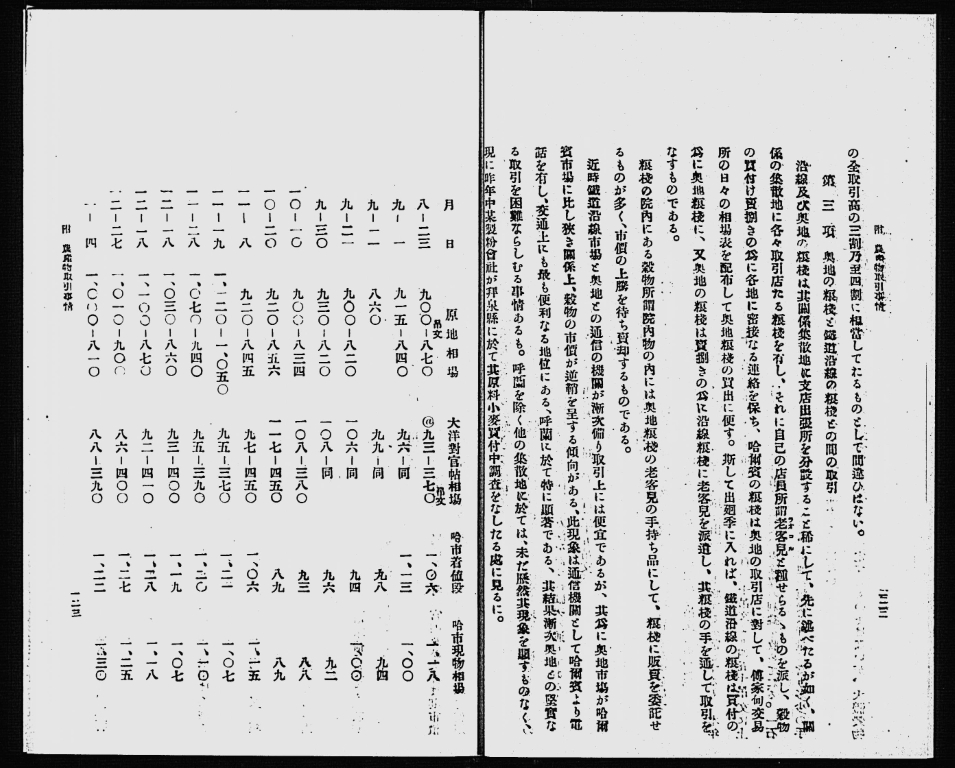 附 農産物取引事情
一二二
の全取引高の三割乃至四割に相當してゐるものとして間違ひはない。
第三項 奥地の糧棧と鐵道沿線の糧棧との間の取引
沿線及び奥地の糧棧は其關係集散地に支店出張所を分設すること稀にして、先に述べたるが如く、關
係の集散地に各々取引店たる糧棧を有し、それに自己の店員所謂老客兒と稱せらるゝものを派し、穀物
の買付け賣捌きの爲に各地に密接なる連絡を保ち、哈爾賓の糧棧は奥地の取引店に對して、傅家甸交易
所の日々の相場表を配布して奥地糧棧の買出に便す。斯して出廻季に入れば、鐵道沿線の糧棧は買付の
爲に奥地糧棧に、又奥地の糧棧は賣捌きの爲に沿線糧棧に老客兒を派遣し、其糧棧の手を通して取引を
なすものである。
糧棧の院內にある穀物所謂院內物の內には奥地糧棧の老客兒の手持ち品にして、糧棧に販賣を委託せ
るものが多く、市價の上騰を待ち賣却するものである。
近時鐵道沿線市場と奥地との通信の機關が漸次備り取引上には便宜であるが、其爲に奥地市場が哈爾
賓市場に比し狹き關係上、穀物の市價が逆鞘を呈する傾向がある、此現象は通信機關として哈爾賓より電
話を有し、交通上にも最も便利なる地位にある、呼蘭に於て特に顯著である、其結果漸次奥地との堅實な
る取引を困難ならしむる事情あるも。呼蘭を除く他の集散地に於ては、未だ歷然其現象を顯すものなく、
現に昨年中某製粉會社が拜泉縣に於て其原料小麥買付中調査をなしたる處に見るに。
月日 原地相場 大洋對官帖相場 哈市着値段 哈市現物相場
八-二三 九〇〇-八七〇吊文 九三-三七〇吊文 一、〇六 一、一八
九-一 九一五-八四〇 九六-同 一、一三 一、〇〇
九-一一 八六〇 九九-同 九八 九四
九-二一 九〇〇-八二〇 一〇六-同 九四 一、〇〇
九-三〇 九三〇-八二〇 一〇八-同 九六 九二
一〇-一〇 九〇〇-八三四 一〇八-三八〇 九三 八八
一〇-二〇 九二〇-八五六 一一七-四五〇 八九 八九
一一-八 九二〇-八四五 九七-四五〇 一、〇六 一、一五
一一-一九 一、一二〇-一、〇五〇 九五-三七〇 一、二一 一、〇七
一一-二八 一、〇七〇-九四〇 九五-三九〇 一、二〇 一、一〇
一二-八 一、〇三〇-八六〇 九三-四〇〇 一、一九 一、〇七
一二-一八 一、一〇〇-八七〇 九二-四一〇 一、二八 一、一八
一二-二七 一、〇一〇-九〇〇 八六-四〇〇 一、二七 一、二五
一-四 一、〇〇〇-八一〇 八八-三九〇 一、二二 一、三〇
附 農産物取引事情
一二三